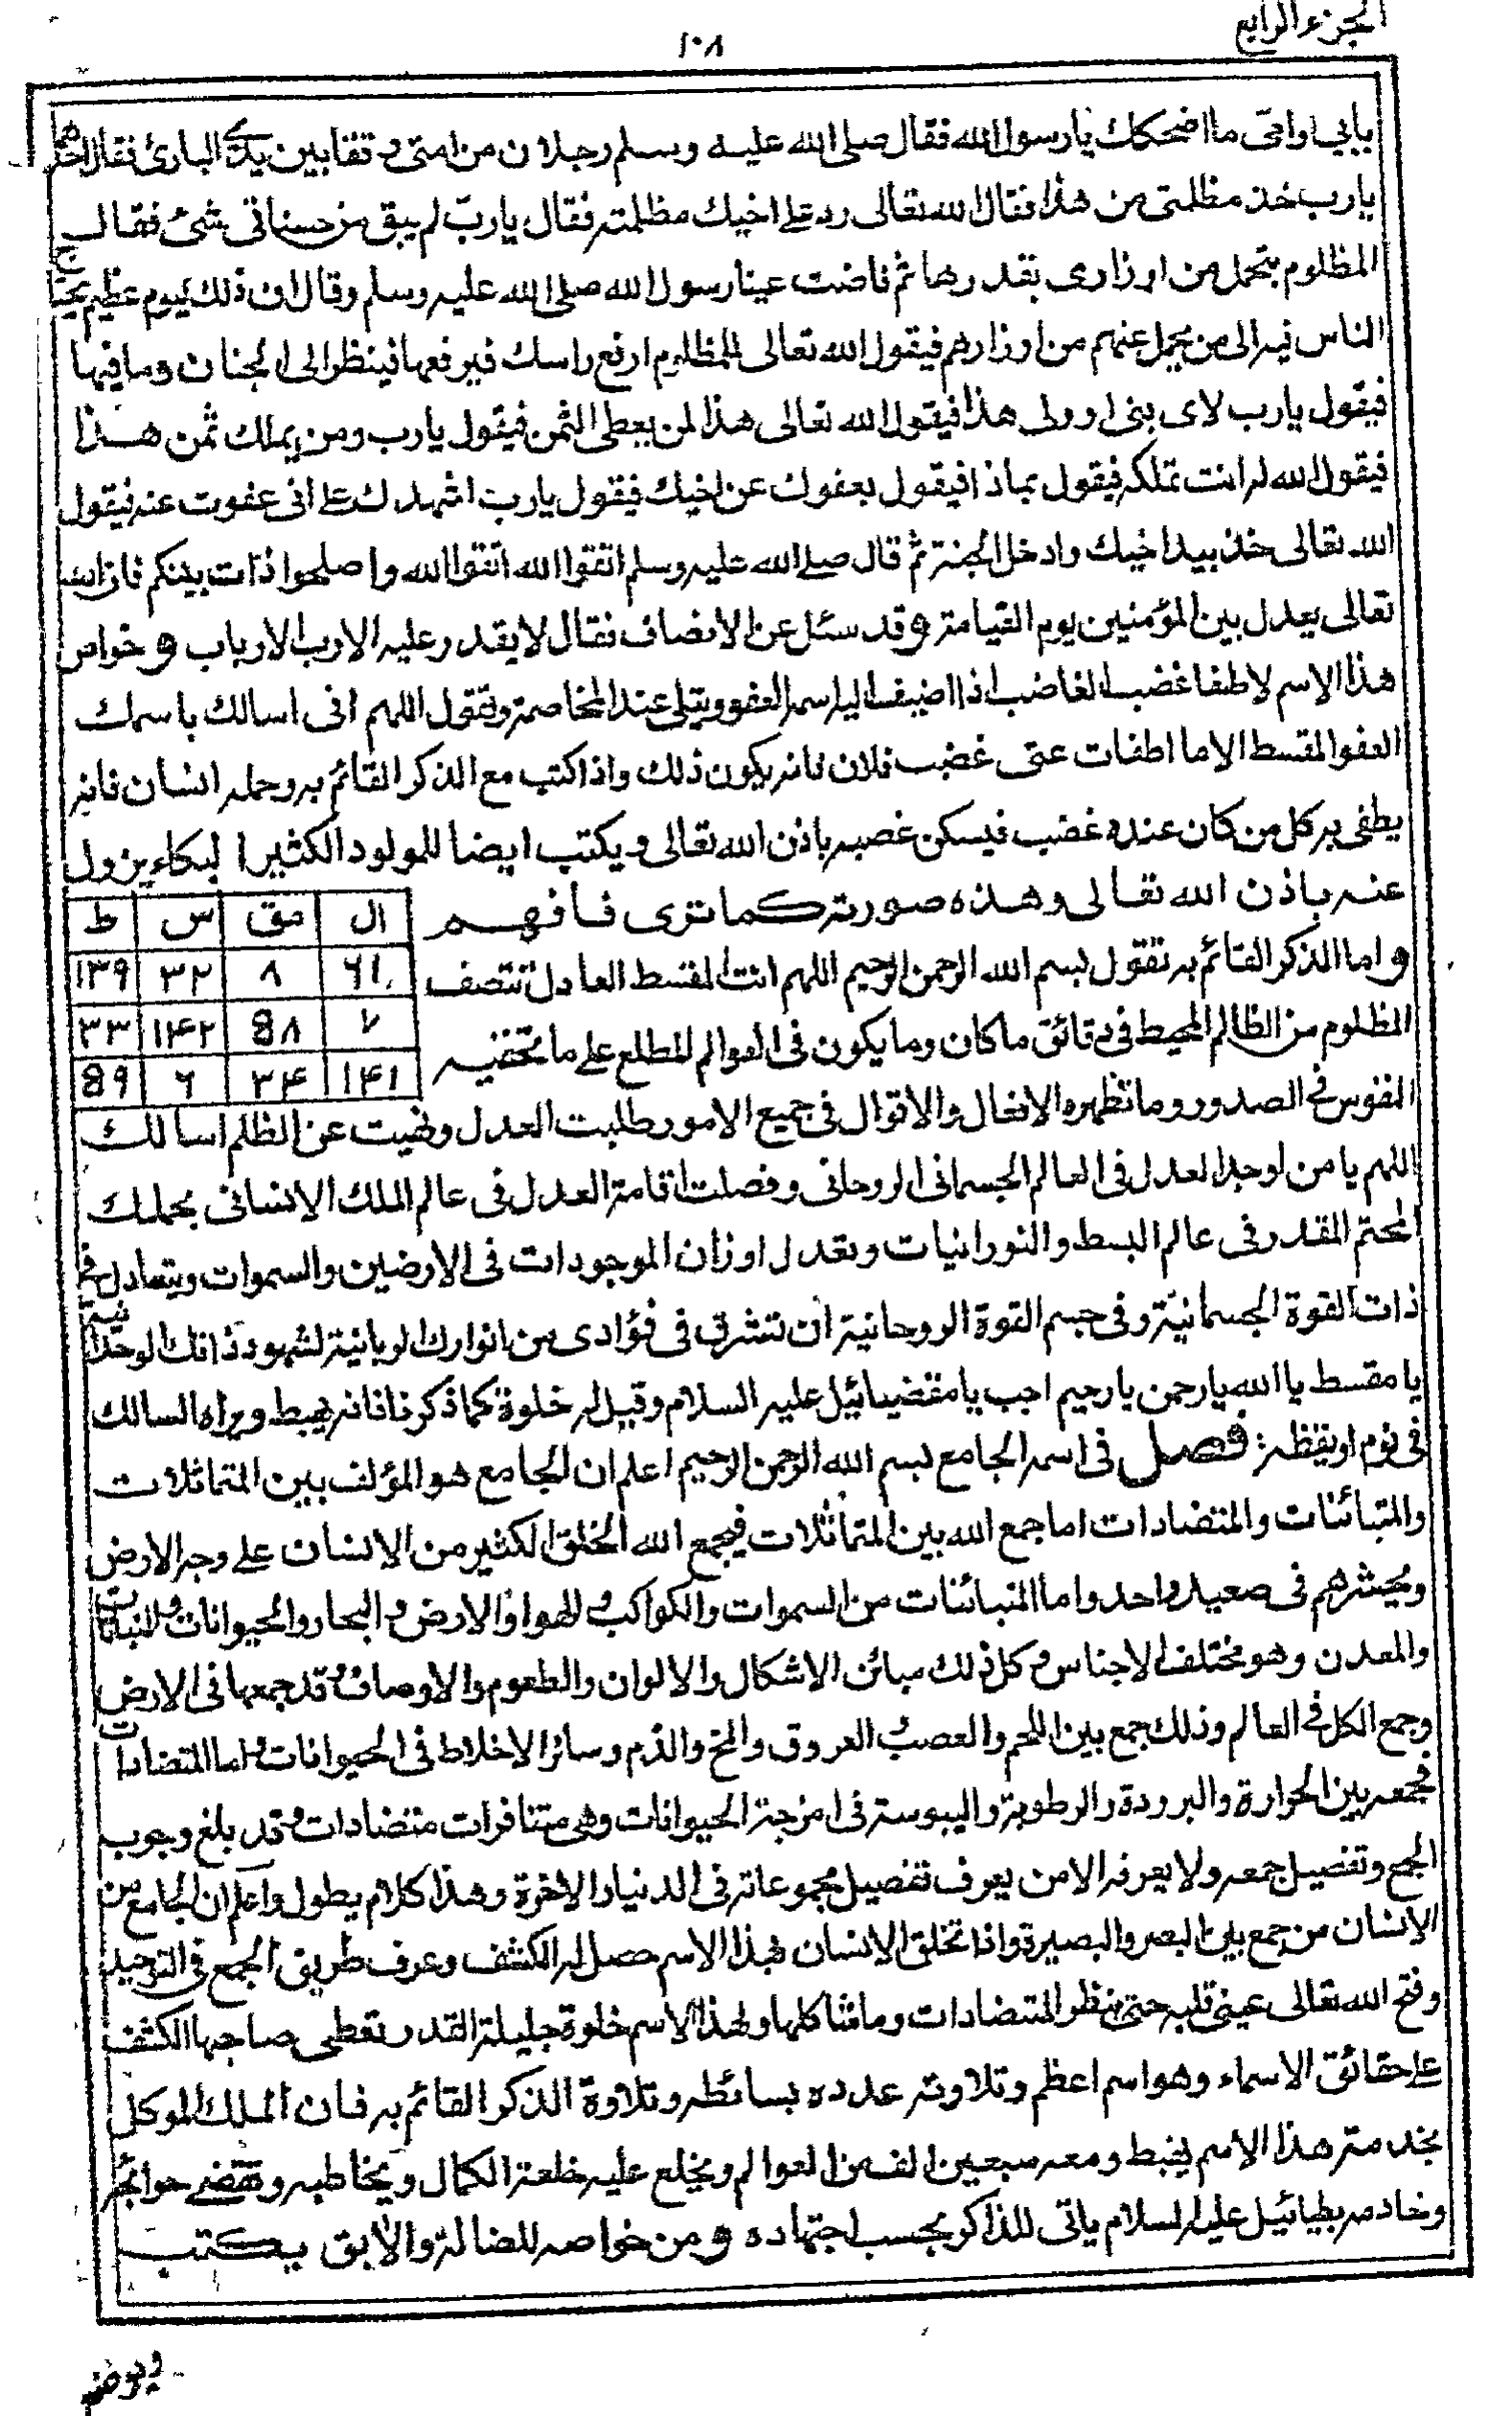 الجزء الرابع
١٠٨
بابي وامي ما اضحكك يا رسول الله فقال صلى الله عليه وسلم رجلان من امتي وقفا بين يدي الباري فقال احدهما
يا رب خذ مظلمتي من هذا فقال الله تعالى رد على اخيك مظلمته فقال يا ربّ لم يبق من حسناتي شئ فقال
المظلوم يتحمل من اوزاري بقدرها ثم فاضت عينا رسول الله صلى الله عليه وسلم وقال ان ذلك ليوم عظيم يحتاج
الناس فيه الى من يحمل عنهم من اوزارهم فيقول الله تعالى للمظلوم ارفع راسك فيرفعها فينظر الى الجنان وما فيها
فيقول يا رب لاي بني او ولي هذا فيقول الله تعالى هذا لمن يعطى الثمن فيقول يا رب ومن يملك ثمن هذا
فيقول الله له انت تملكه فيقول بماذا فيقول بعفوك عن اخيك فيقول يا رب اشهدك على اني عفوت عنه فيقول
الله تعالى خذ بيد اخيك وادخل الجنة ثم قال صلى الله عليه وسلم اتقوا الله اتقوا الله واصلحوا ذات بينكم فان الله
تعالى يعدل بين المؤمنين يوم القيامة وقد سئل عن الانصاف فقال لا يقدر عليه الا رب الارباب وخواص
هذا الاسم لاطفا غضب الغاضب اذا اضيف اليه اسمه العفو ويتلى عند المخاصمة وتقول اللهم اني اسالك باسمك
العفو المقسط الا ما اطفات عني غضب فلان فانه يكون ذلك واذا كتب مع الذكر القائم به وحمله انسان فانه
يطفى به كل من كان عنده غضب فيسكن غصبه باذن الله تعالى ويكتب ايضا للمولود الكثير البكاء يزول
عنه باذن الله تعالى وهذه صورته كما ترى فافهم
ال مق س ط
واما الذكر القائم به تقول بسم الله الرحمن الرحيم اللهم انت المقسط العادل تنتصف
٦١ ٨ ٣٢ ١٣٩
المظلوم من الظالم المحيط في دقائق ما كان وما يكون في العوالم المطلع على ما تخفيه
٧ ٥٨ ١٤٢ ٣٣
١٤١ ٣٤ ٦ ٥٩
النفوس في الصدور وما تظهره الافعال والاقوال في جميع الامور طلبت العدل ونهيت عن الظلم اسالك
اللهم يا من اوجد العدل في العالم الجسماني الروحاني وفصلت اقامة العدل في عالم الملك الانساني بحملك
المحتم المقدر في عالم البسط والنورانيات وتعدل اوزان الموجودات في الارضين والسموات ويتعادل في
ذات القوة الجسمانيّة وفي جسم القوة الروحانية ان تشرق في فؤادي من انوارك الربانية لشهود ذاتك الوحدانية
يا مقسط يا الله يا رحمن يا رحيم اجب يا مقضيائيل عليه السلام وقيل له خلوة كما ذكرنا فانه يهبط ويراه السالك
في نوم او يقظة: فصل في اسمه الجامع بسم الله الرحمن الرحيم اعلم ان الجامع هو المؤلف بين المتماثلات
والمتبائنات والمتضادات اما جمع الله بين المتماثلات فيجمع الله الخلق الكثير من الانسان على وجه الارض
ويحشرهم في صعيد واحد واما المتبائنات من السموات والكواكب والهوا والارض والبحار والحيوانات والنباتات
والمعدن وهو مختلف الاجناس وكل ذلك مبائن الاشكال والالوان والطعوم والاوصاف وقد جمعها في الارض
وجمع الكل في العالم وذلك جمع بين اللحم والعصب العروق والمخ والدم وسائر الاخلاط في الحيوانات واما المتضادات
فجمعه بين الحرارة والبرودة والرطوبة واليبوسة في امزجة الحيوانات وهي متنافرات متضادات وقد بلغ وجوب
الجمع وتفصيل جمعه ولا يعرفه الا من يعرف تفصيل مجموعاته في الدنيا والاخرة وهذا كلام يطول واعلم ان الجامع من
الانسان من جمع بين البصر والبصيرة واذا تخلق الانسان بهذا الاسم حصل له الكشف وعرف طريق الجمع في التوحيد
وفتح الله تعالى عيني قلبه حتى ينظر المتضادات وماشا كلها ولهذا الاسم خلوة جليلة القدر تعطى صاحبها الكشف
على حقائق الاسماء وهو اسم اعظم وتلاوته عدده بسائطه وتلاوة الذكر القائم به فان الملك الموكل
بخدمة هذا الاسم يهبط ومعه سبعين الف من العوالم ويخلع عليه خلعة الكمال ويخاطبه وتقضى حوائجه
وخادمه بطيائيل عليه السلام ياتي للذاكر بحسب اجتهاده ومن خواصه للضالة والابق يكتب